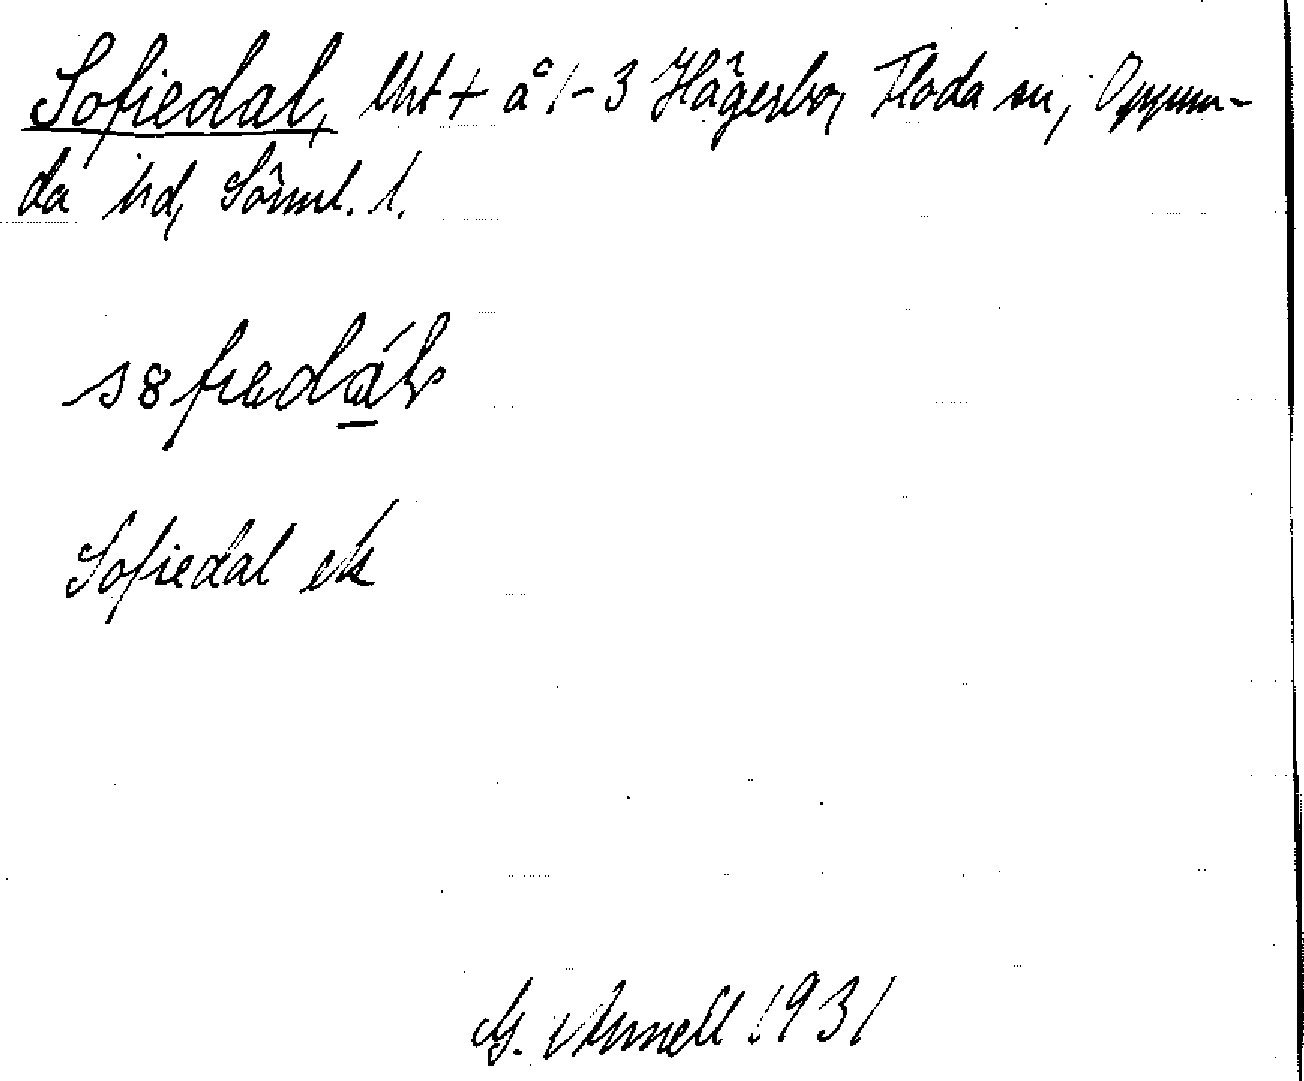 Sofiedal, lht + å 1-3 Hägerbo, Floda sn, Oppun-
da hd, Sörml. l.
Sofiedal ek
G. Arnell 1931